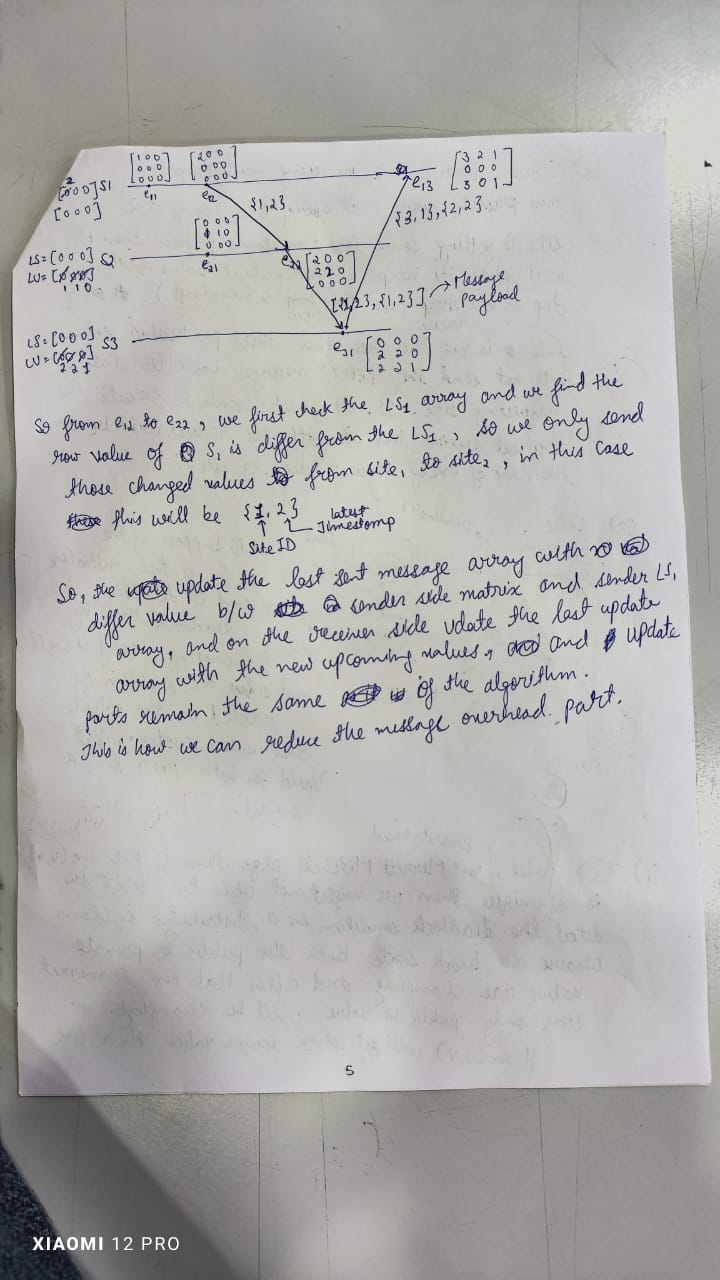 [1 0 0]
[0 0 0]
[0 0 0]
[2 0 0]
[0 0 0]
[0 0 0]
2
[0 0 0] S1
[0 0 0]
e11
e12
{1,2}
e13
[3 2 1]
[0 0 0]
[3 0 1]
{3,1},{2,2}
LS=[0 0 0] S2
LU=[0 0 0]
1 1 0.
[0 0 0]
[1 1 0]
[0 0 0]
e21
e22
[2 0 0]
[2 2 0]
[0 0 0]
[{2,2},{1,2}] → Message
Payload
LS=[0 0 0] S3
LU=[0 0 0]
2 2 1
e31
[0 0 0]
[2 2 0]
[2 2 1]
So from e12 to e22, we first check the LS1 array and we find the
row value of S1 is differ from the LS1, so we only send
those changed values from site1 to site2, in this case
this will be {1,2} latest
Timestomp
Site ID
So, the update the last sent message array with
differ value b/w sender side matrix and sender LS1
array, and on the receiver side vdate the last update
array with the new upcoming values, and update
parts remain the same of the algorithm.
This is how we can reduce the message overhead part.
5
XIAOMI 12 PRO